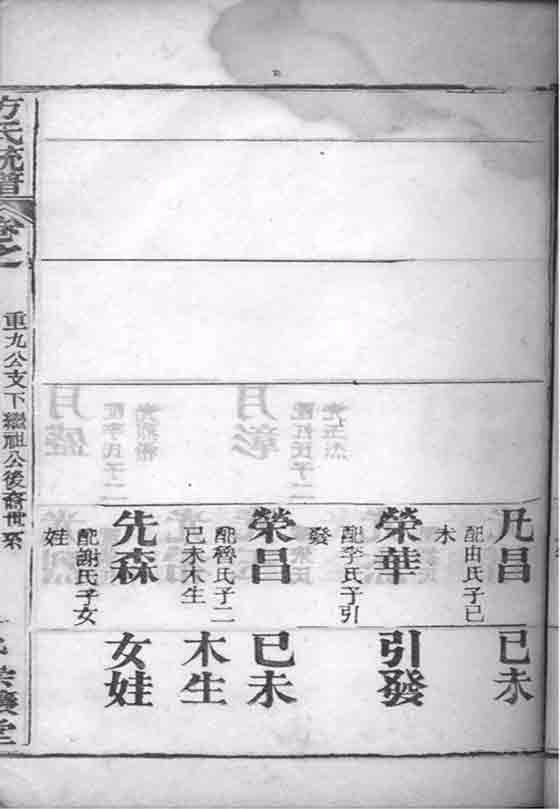 凡昌
配由氏子己
未
榮華
配李氏子引
發
榮昌
配魯氏子二
己未木生
先森
配謝氏子女
娃
己未
引發
己未
木生
女娃
方氏統譜
卷之
重九公支下繼祖公後裔世系